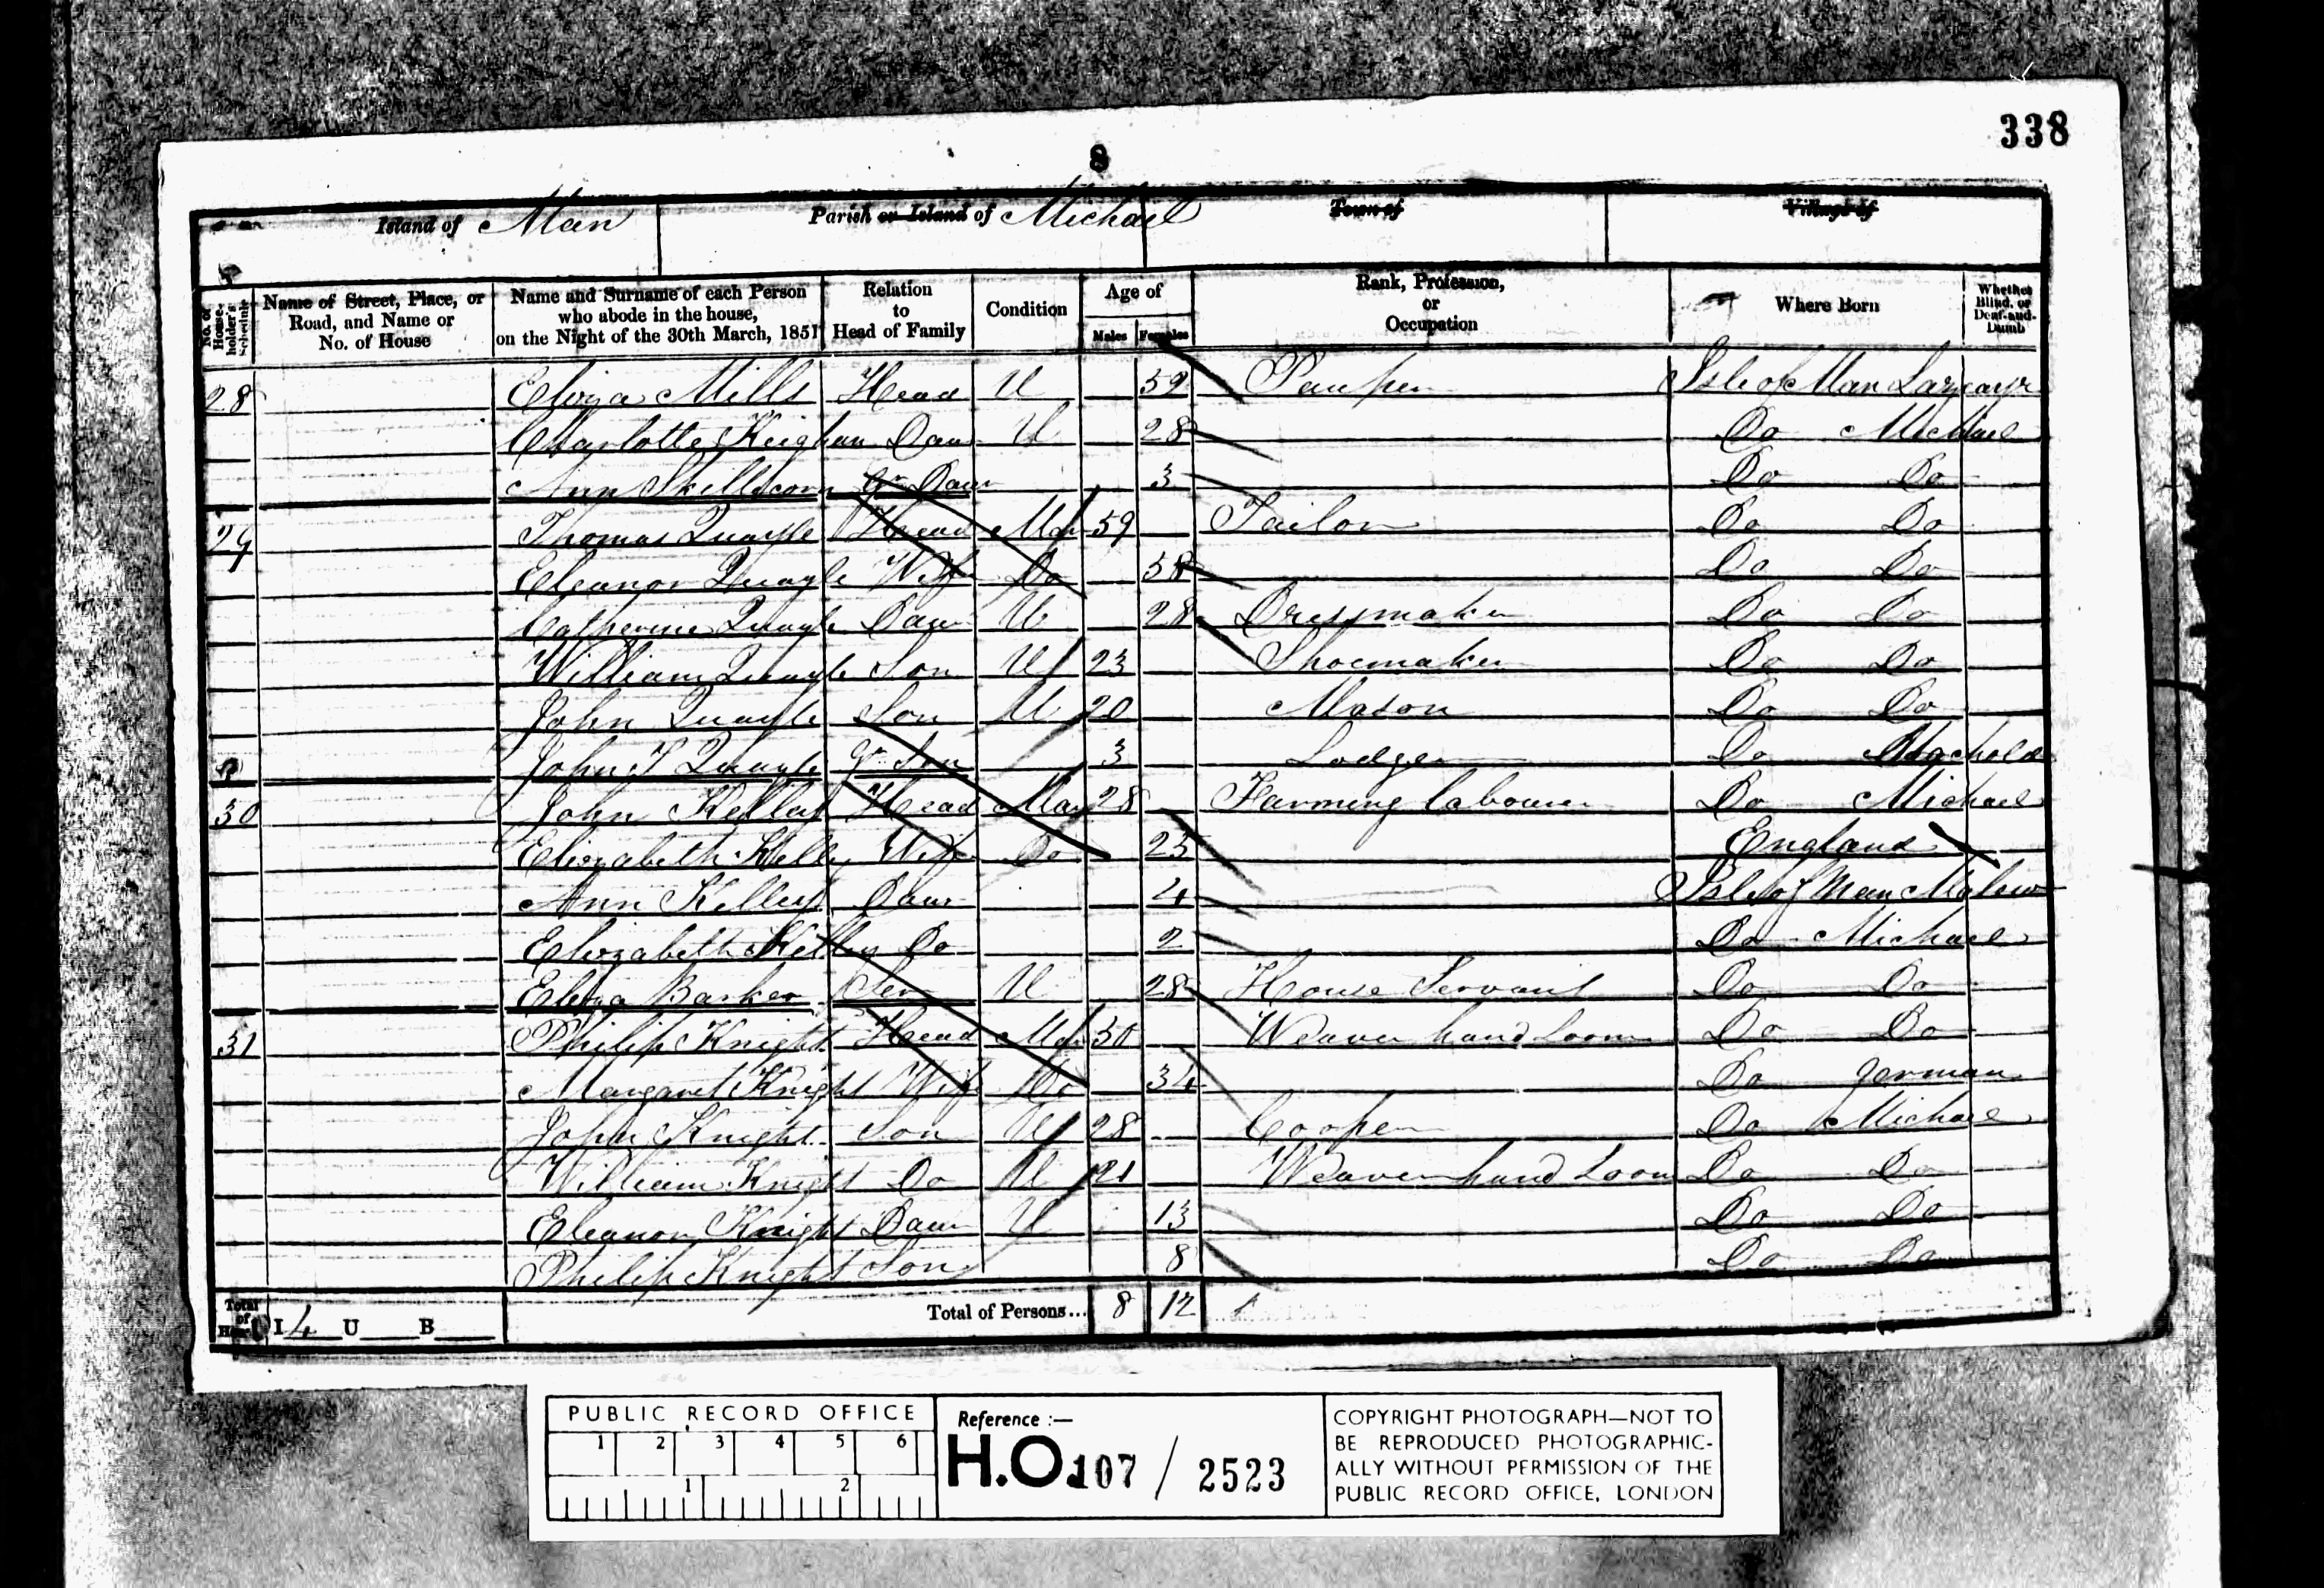 338
8
Island of Man Parish or Island of Michael Town of Village of
No. of House-holder's Schedule Name of Street, Place, or Road, and Name or No. of House Name and Surname of each Person who abode in the house, on the Night of the 30th March, 1851 Relation to Head of Family Condition Age of Males Females Rank, Profession, or Occupation Where Born Whether Blind, or Deaf-and-Dumb
28 Eliza Mills Head U 52 Pauper Isle of Man
Charlotte Keighan Daur U 28 Do Michael
Ann Skillicorn Gr Daur 3 Do Do
29 Thomas Quayle Head Mar 59 Tailor Do Do
Eleanor Quayle Wife Do 58 Do Do
Catherine Quayle Daur U 28 Dressmaker Do Do
William Quayle Son U 23 Shoemaker Do Do
John Quayle Son U 20 Mason Do Do
John T Quayle Gr Son 3 Lodger Do Maghold
30 John Kelley Head Mar 28 Farming labourer Do Michael
Elizabeth Kelley Wife Do 25 England
Ann Kelley Daur 4 Isle of Man Malew
Elizabeth Kelley Do 2 Do Michael
Eliza Barker Ser U 28 House Servant Do Do
31 Philip Knight Head Mar 50 Weaver hand Loom Do Do
Margaret Knight Wife Do 54 Do German
John Knight Son U 28 Cooper Do Michael
William Knight Do U 21 Weaver hand Loom Do Do
Eleanor Knight Daur U 13 Do Do
Philip Knight Son 8 Do Do
Total of Houses I 4 U B Total of Persons... 8 12
PUBLIC RECORD OFFICE
1 2 3 4 5 6
1 2
Reference :—
H.O. 107 / 2523
COPYRIGHT PHOTOGRAPH—NOT TO
BE REPRODUCED PHOTOGRAPHIC-
ALLY WITHOUT PERMISSION OF THE
PUBLIC RECORD OFFICE, LONDON